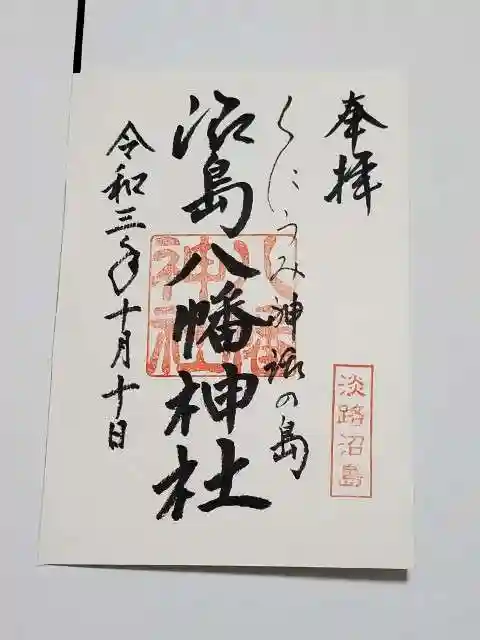 奉拝
淡路沼島
くにうみ神話の島
沼島八幡神社
八幡
神社
令和三年十月十日